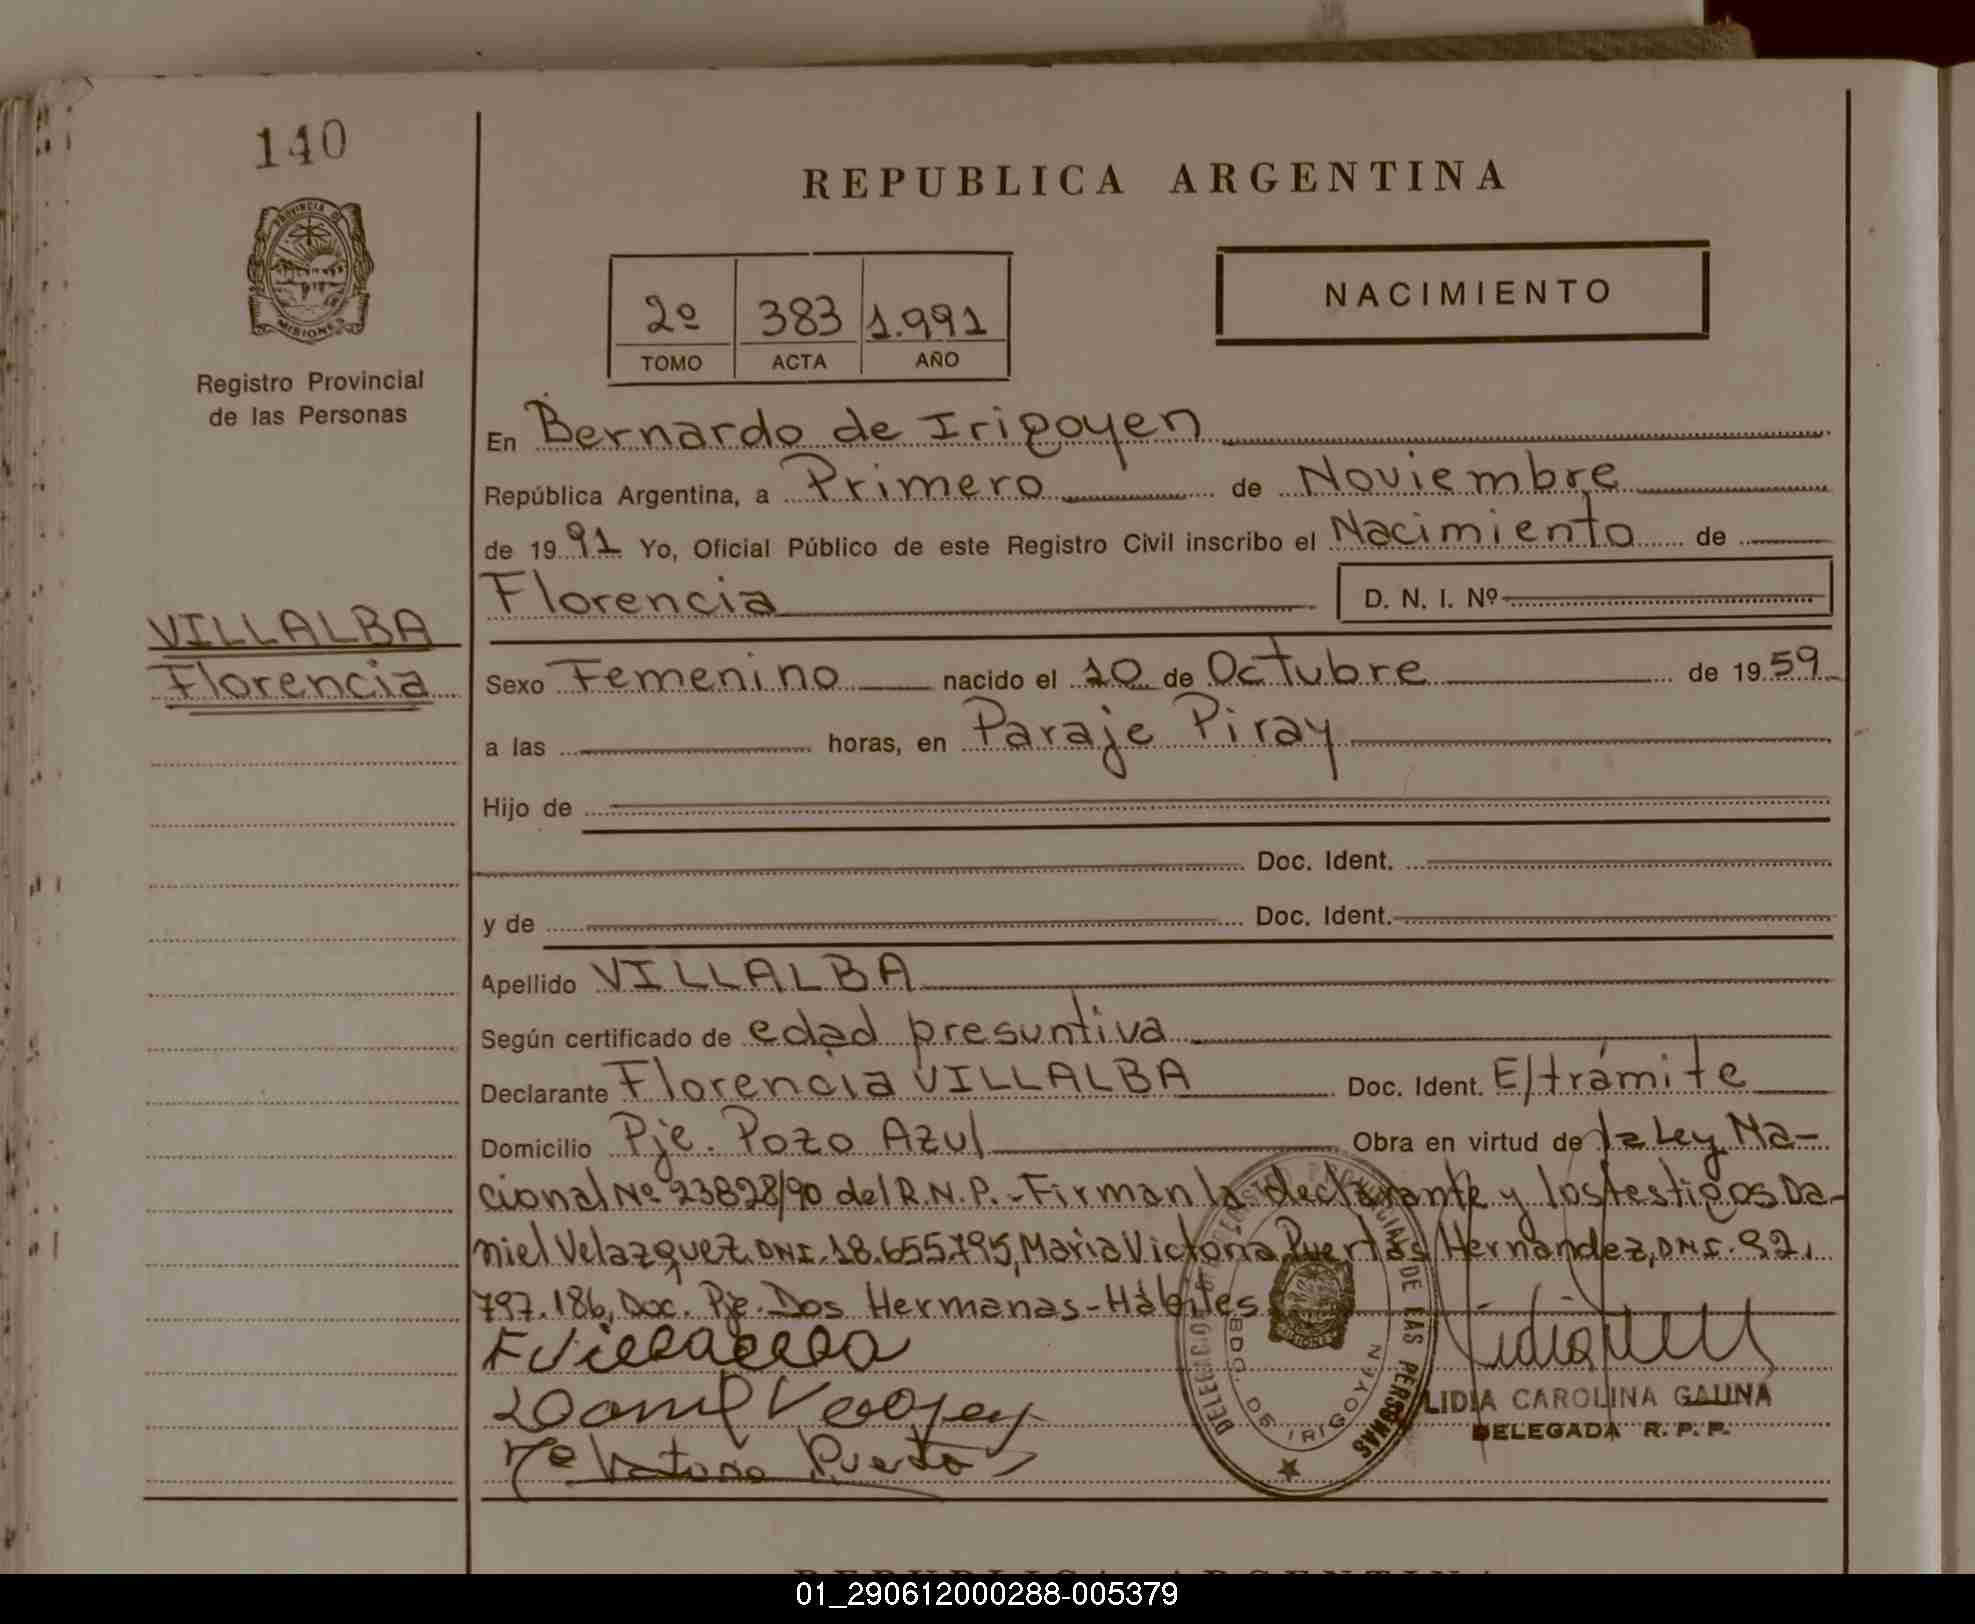 140
REPUBLICA ARGENTINA
PROVINCIA DE
MISIONES
Registro Provincial
de las Personas
2º 383 1.991
TOMO ACTA AÑO
NACIMIENTO
En Bernardo de Irigoyen
República Argentina, a Primero de Noviembre
de 19 91 Yo, Oficial Público de este Registro Civil inscribo el Nacimiento de
Florencia D. N. I. Nº
VILLALBA
Florencia
Sexo Femenino nacido el 10 de Octubre de 19 59
a las horas, en Paraje Piray
Hijo de
Doc. Ident.
y de Doc. Ident.
Apellido VILLALBA
Según certificado de edad presuntiva
Declarante Florencia VILLALBA Doc. Ident. E/trámite
Domicilio Pje. Pozo Azul Obra en virtud de la Ley Na-
cional Nº 23828/90 del R.N.P.-Firman la declarante y los testigos Da-
niel Velazquez DNI. 18.655.795, Maria Victoria Puertas Hernandez, DNI. 92.
797.186, Doc. Pje. Dos Hermanas-Hábiles
F Villalba
Daniel Velazquez
Mª Victoria Puertas
DELEGACION REGISTRO PROVINCIAL DE LAS PERSONAS
BDO. DE IRIGOYEN
MISIONES
LIDIA CAROLINA GAUNA
DELEGADA R. P. P.
REPUBLICA ARGENTINA
01_290612000288-005379